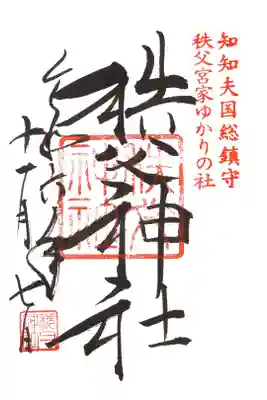 知知夫国総鎮守
秩父宮家ゆかりの社
秩父神社
令和六年
十一月七日